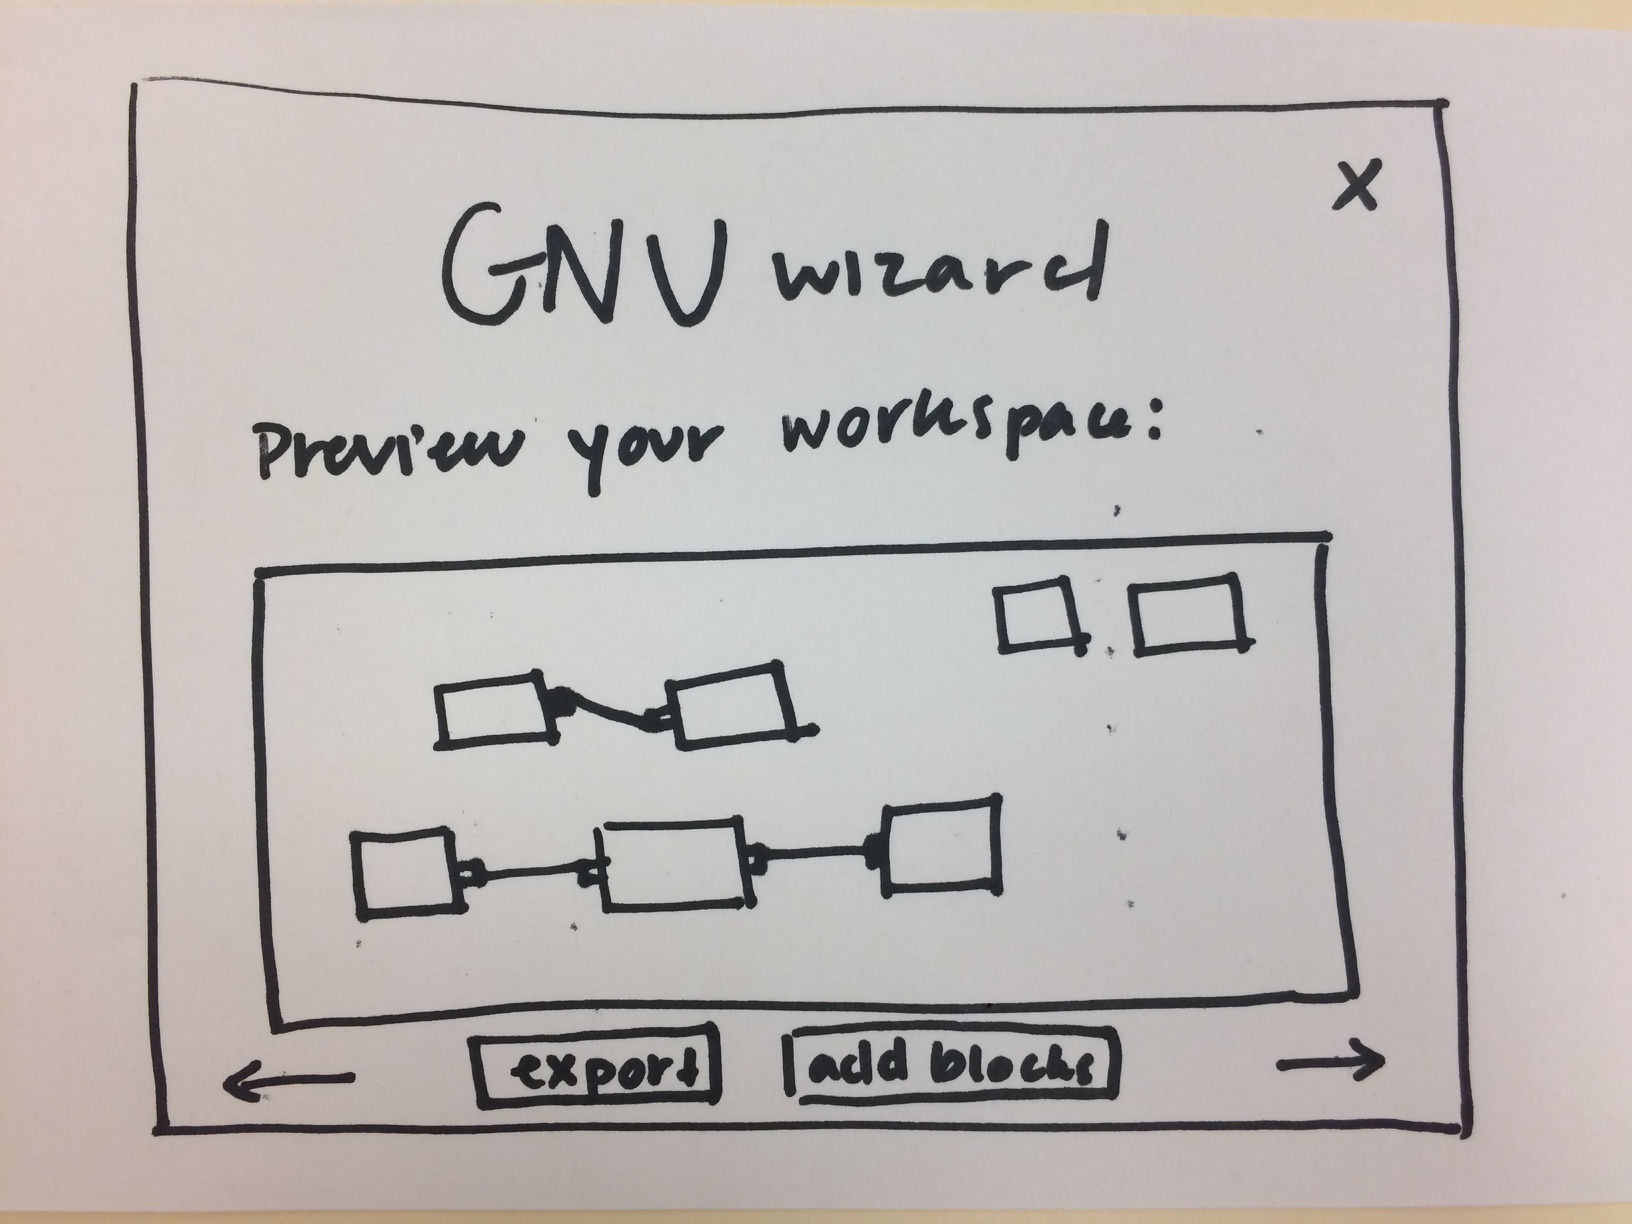 X
GNU wizard
Preview your workspace:
export
add blocks